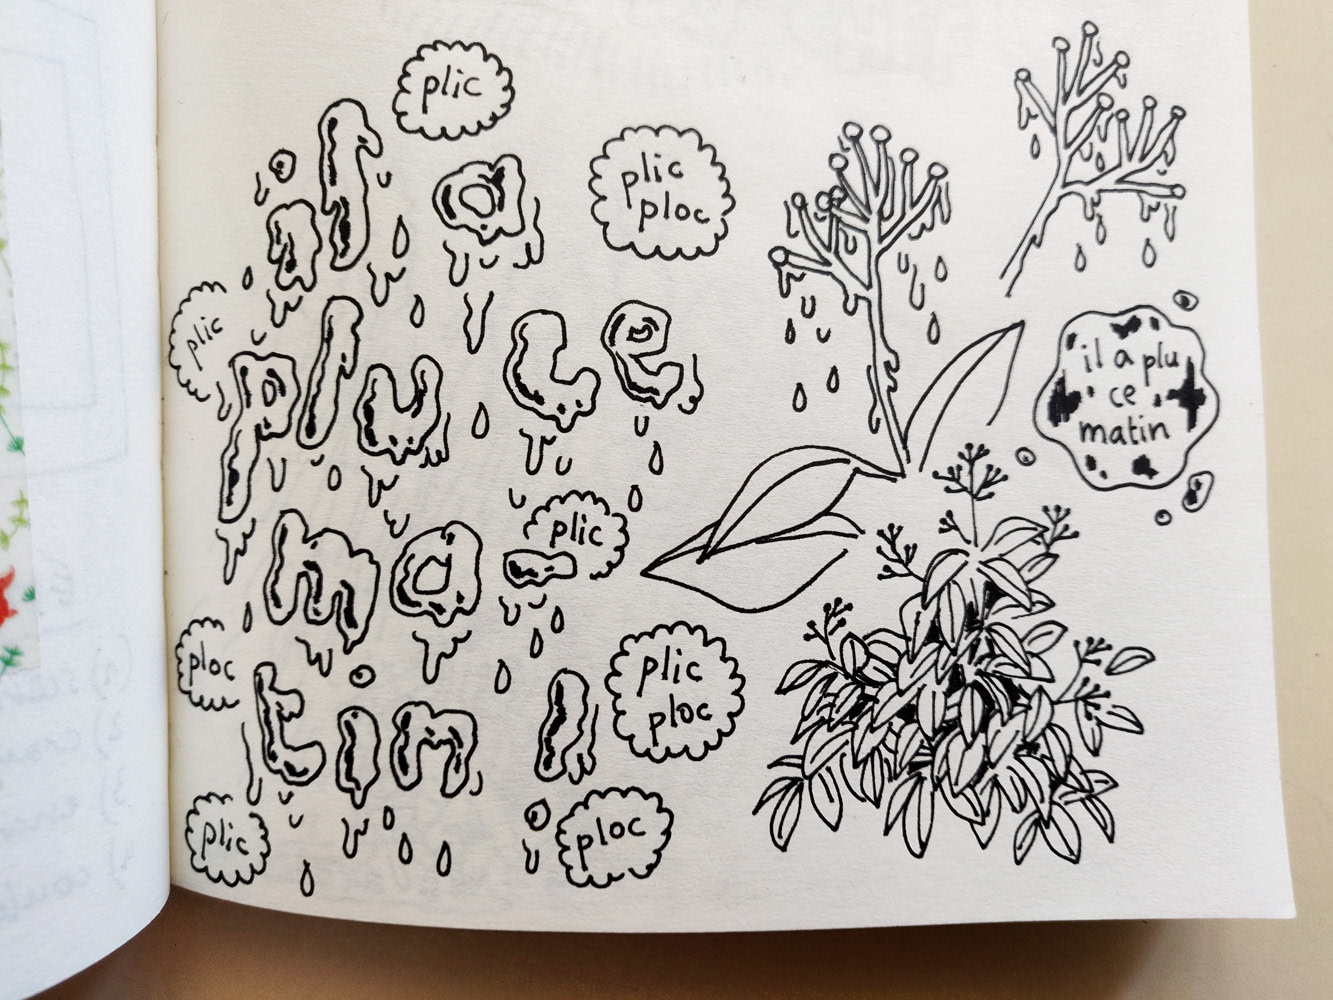 plic
il a
plic
ploc
plic
plu ce
plic
ma-
ploc
plic
ploc
tin !
plic
ploc
il a plu
ce
matin